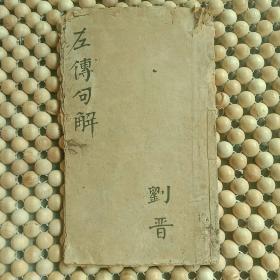 左傳句解
劉晋